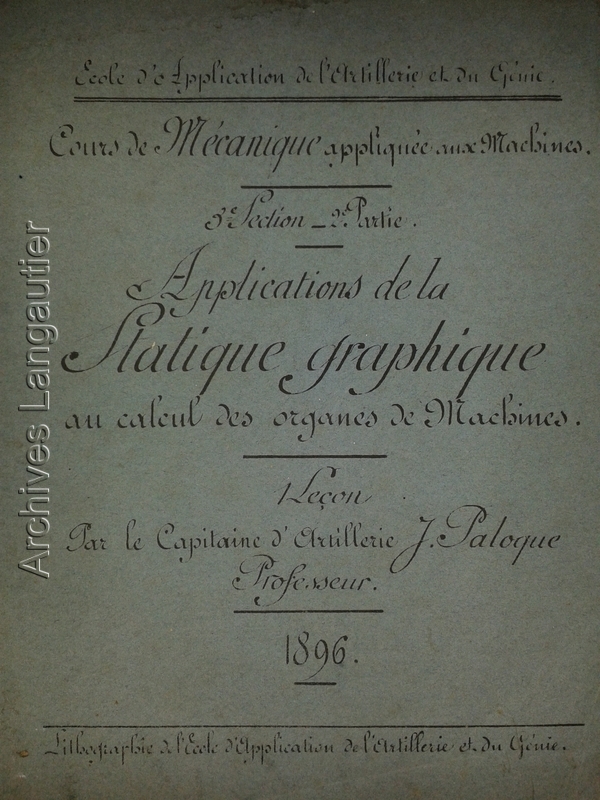 Ecole d'Application de l'Artillerie et du Génie.
Cours de Mécanique appliquée aux Machines.
3e Section _ 2de Partie.
Applications de la
Statique graphique
au calcul des organes de Machines.
1 Leçon
Par le Capitaine d'Artillerie J. Paloque
Professeur.
1896.
Lithographie de l'Ecole d'Application de l'Artillerie et du Génie.
Archives Langautier